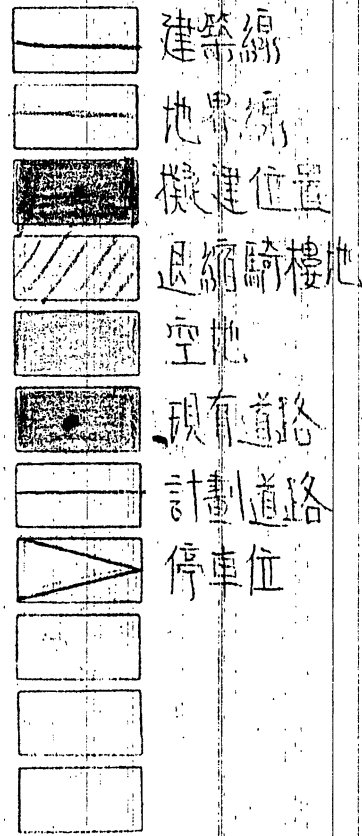 建築線
地界線
擬建位置
退縮騎樓地
空地
現有道路
計劃道路
停車位